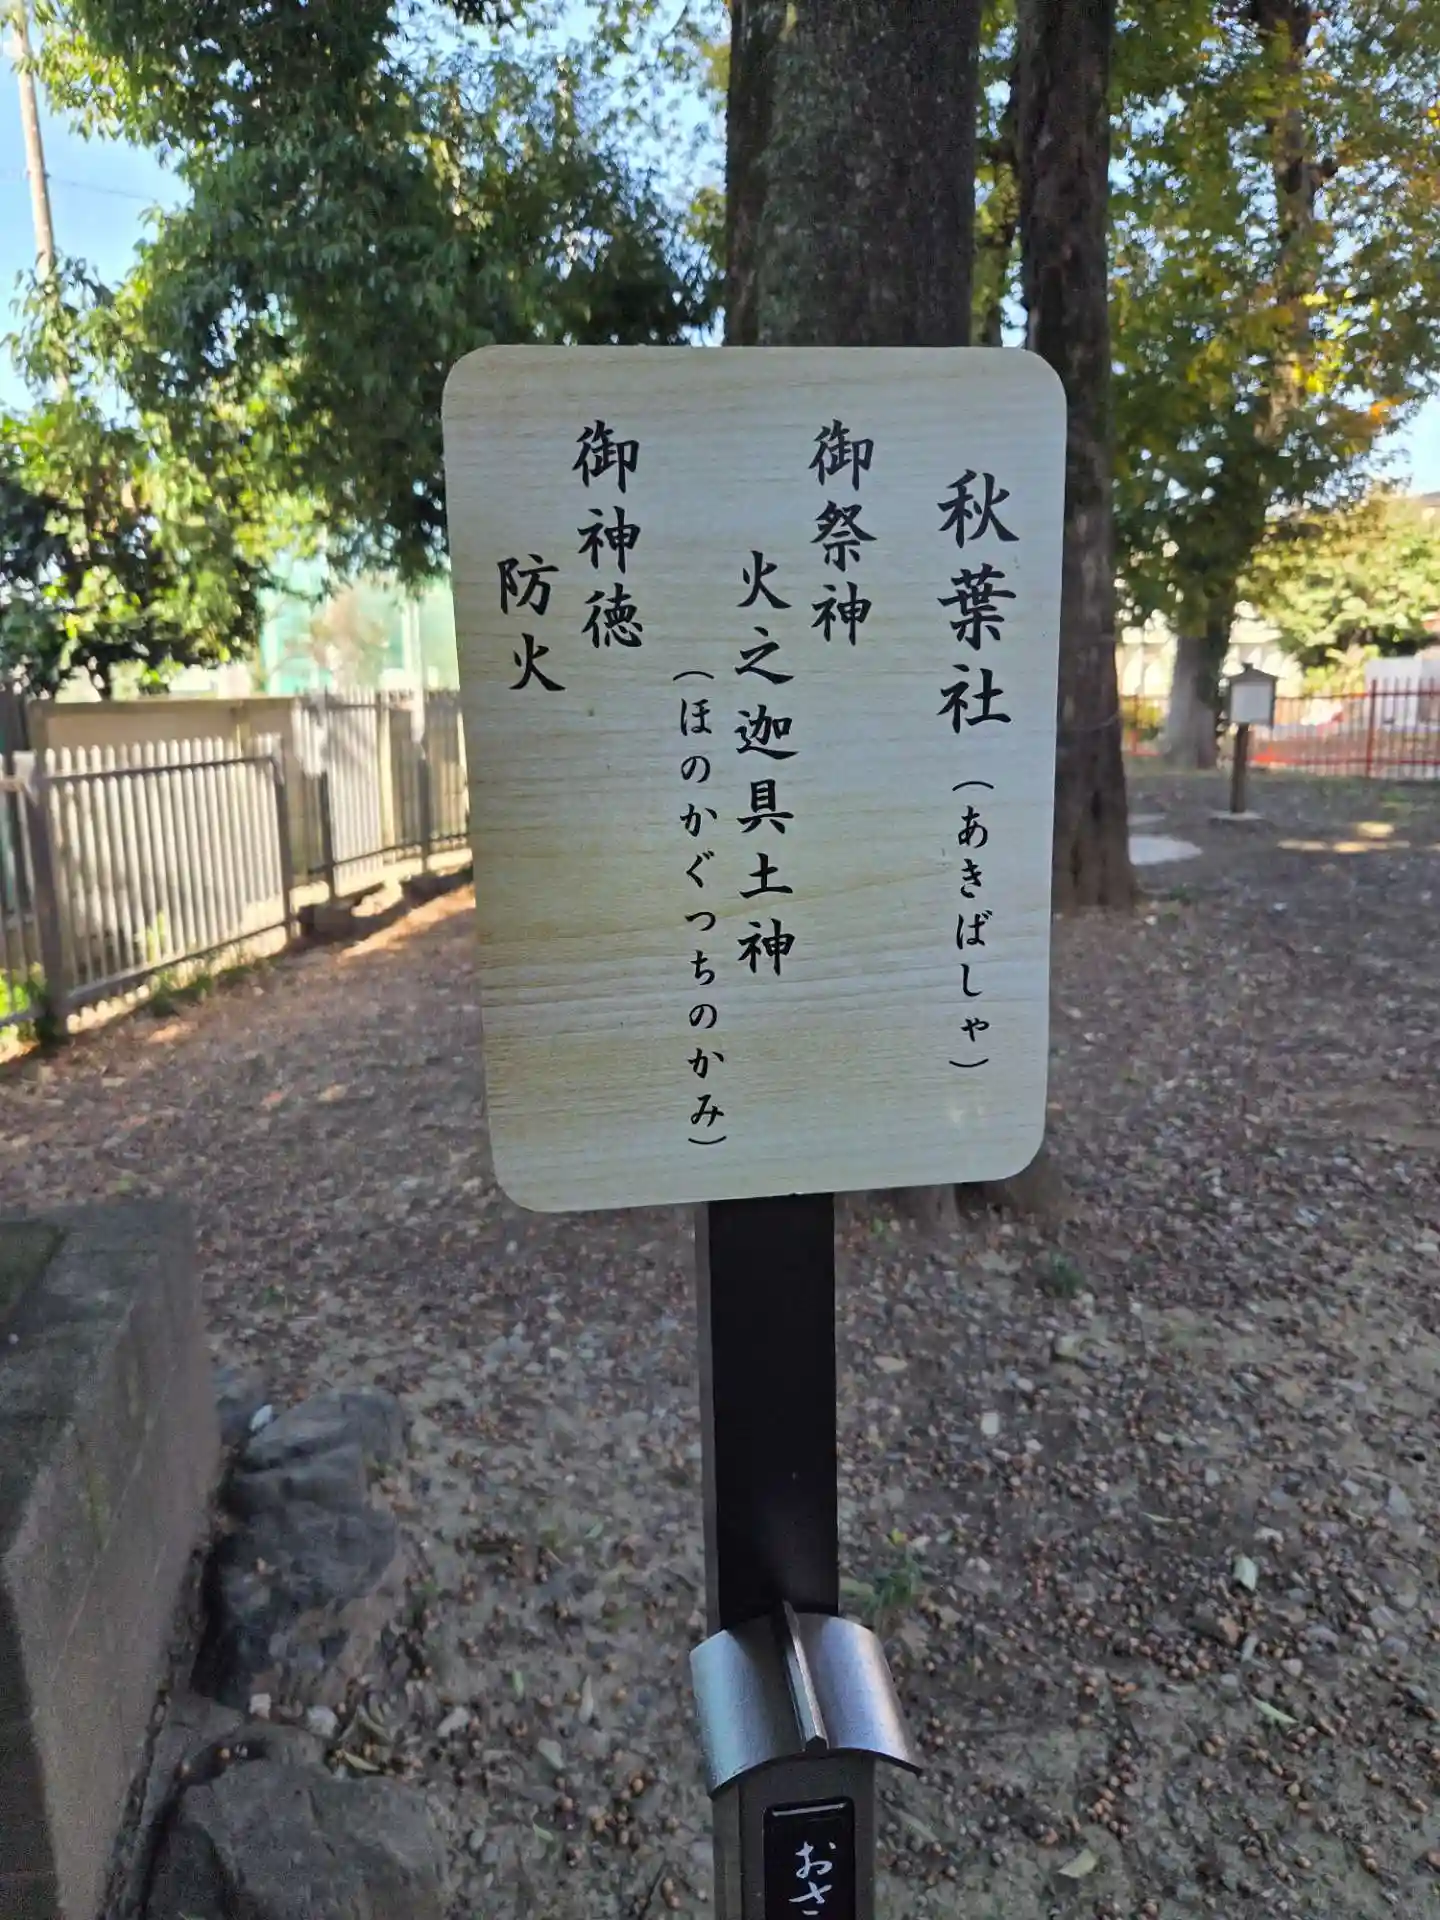 秋葉社（あきばしゃ）
御祭神
火之迦具土神
（ほのかぐつちのかみ）
御神徳
防火
おさ